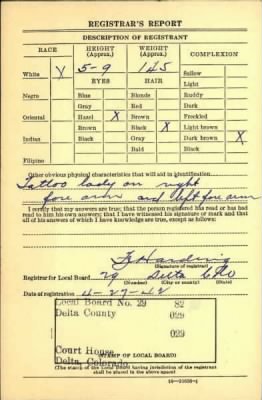 REGISTRAR'S REPORT
DESCRIPTION OF REGISTRANT
RACE HEIGHT (Approx.) WEIGHT (Approx.) COMPLEXION
White X 5-9 145 Sallow
EYES HAIR Light
Negro Blue Blonde Ruddy
Gray Red Dark
Oriental Hazel X Brown Freckled
Brown Black X Light brown
Indian Black Gray Dark brown X
Bald Black
Filipino
Other obvious physical characteristics that will aid in identification
Tattoo lady on right
fore arm and left fore arm
I certify that my answers are true; that the person registered has read or has had
read to him his own answers; that I have witnessed his signature or mark and that
all of his answers of which I have knowledge are true, except as follows:
Harding
(Signature of registrar)
Registrar for Local Board 29 Delta Colo
(Number) (City or county) (State)
Date of registration 4-27-42
Local Board No. 29 82
Delta County 029
029
Court House
Delta, Colorado
(STAMP OF LOCAL BOARD)
(The stamp of the Local Board having jurisdiction of the registrant
shall be placed in the above space)